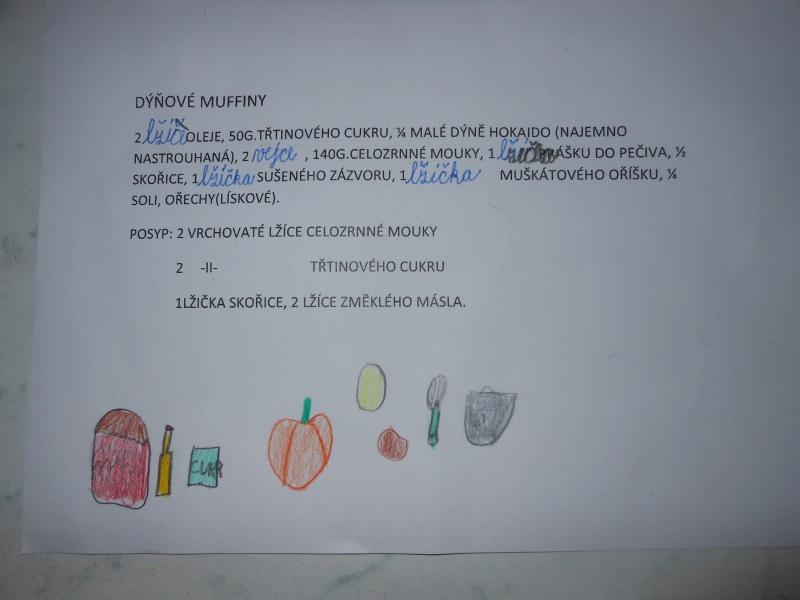 DÝŇOVÉ MUFFINY
2 lžíce OLEJE, 50G.TŘTINOVÉHO CUKRU, ¼ MALÉ DÝNĚ HOKAIDO (NAJEMNO
NASTROUHANÁ), 2 vejce , 140G.CELOZRNNÉ MOUKY, 1 PRÁŠKU DO PEČIVA, ½
SKOŘICE, 1 lžička SUŠENÉHO ZÁZVORU, 1 lžička MUŠKÁTOVÉHO OŘÍŠKU, ¼
SOLI, OŘECHY(LÍSKOVÉ).
POSYP: 2 VRCHOVATÉ LŽÍCE CELOZRNNÉ MOUKY
2 -II- TŘTINOVÉHO CUKRU
1LŽIČKA SKOŘICE, 2 LŽÍCE ZMĚKLÉHO MÁSLA.
CUKR